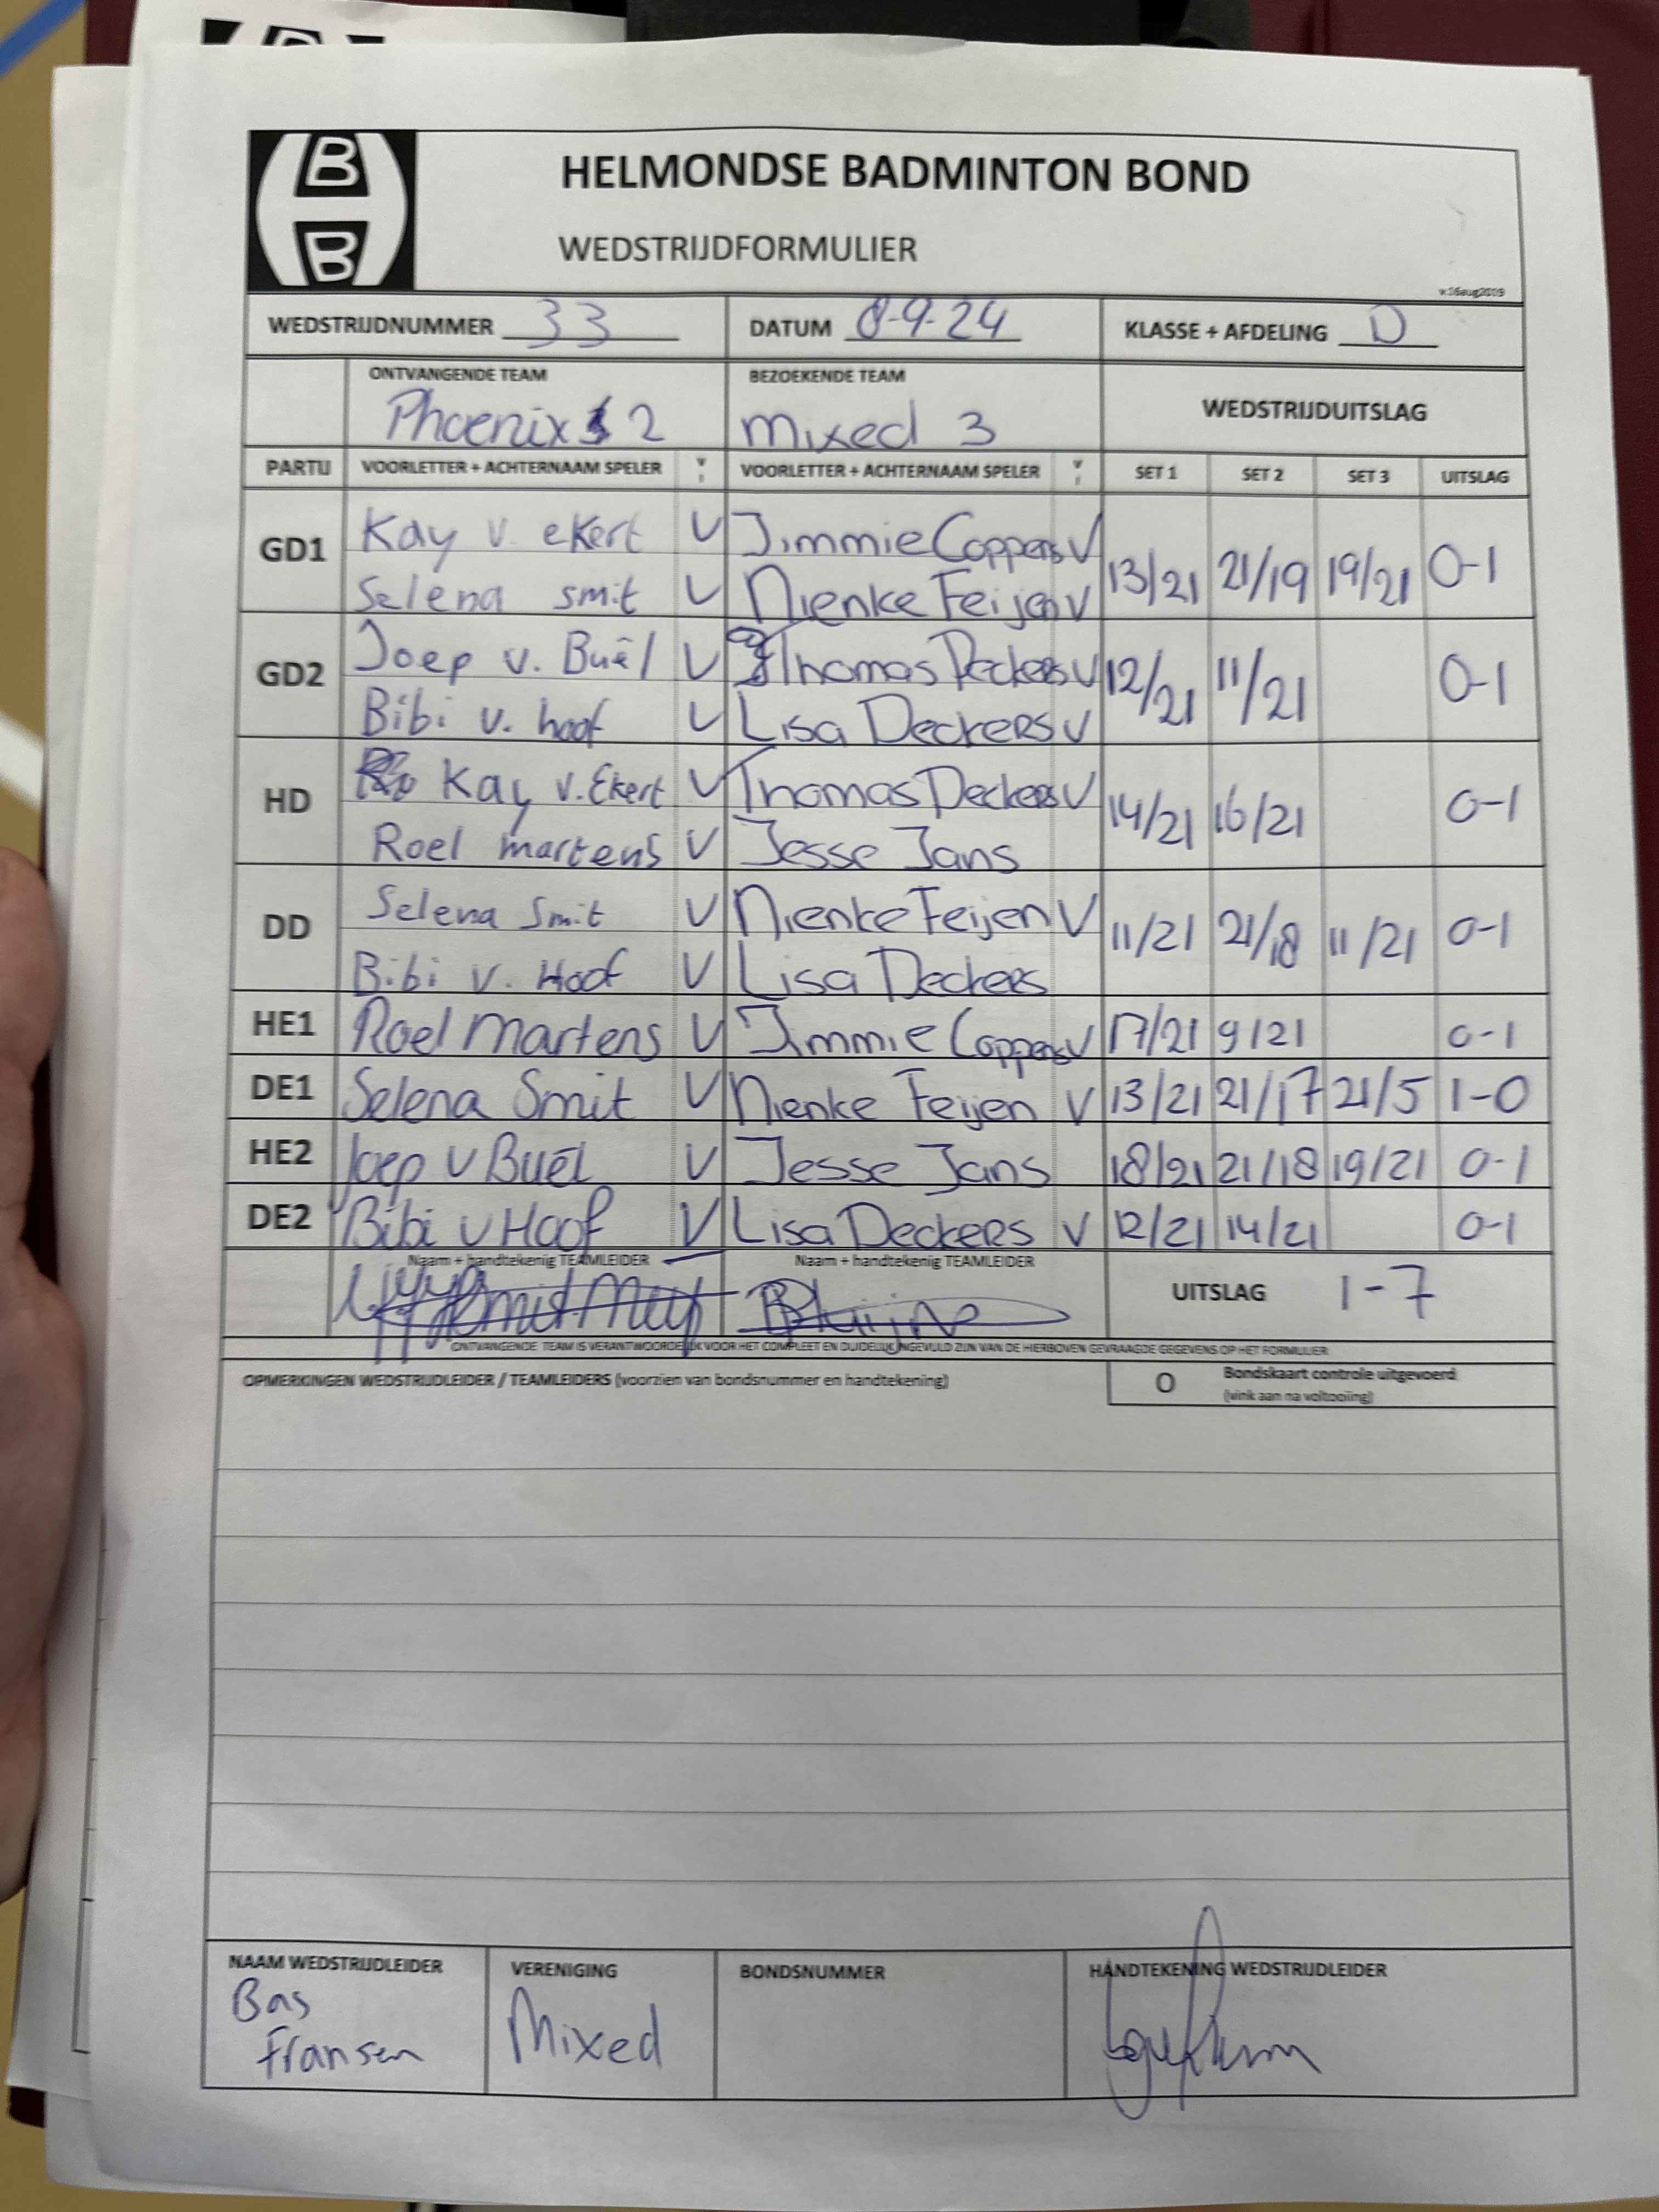 B
B
HELMONDSE BADMINTON BOND
WEDSTRIJDFORMULIER
v.16aug2019
WEDSTRIJDNUMMER 33 DATUM 8-9-24 KLASSE + AFDELING D
ONTVANGENDE TEAM BEZOEKENDE TEAM WEDSTRIJDUITSLAG
Phoenix 2 Mixed 3
PARTIJ VOORLETTER + ACHTERNAAM SPELER VOORLETTER + ACHTERNAAM SPELER SET 1 SET 2 SET 3 UITSLAG
GD1 Kay v. ekert V Jimmie Coppens V 13/21 21/19 19/21 0-1
Selena smit V Nienke Feijen V
GD2 Joep v. Buël V Thomas Deckers V 12/21 11/21 0-1
Bibi v. hoof V Lisa Deckers V
HD Kay v. Ekert V Thomas Deckers V 14/21 16/21 0-1
Roel martens V Jesse Jans
DD Selena Smit V Nienke Feijen V 11/21 21/18 11/21 0-1
Bibi v. Hoof V Lisa Deckers
HE1 Roel Martens V Jimmie Coppens V 17/21 9/21 0-1
DE1 Selena Smit V Nienke Feijen V 13/21 21/17 21/5 1-0
HE2 Joep v Buël V Jesse Jans 18/21 21/18 19/21 0-1
DE2 Bibi v Hoof V Lisa Deckers V 12/21 14/21 0-1
Naam + handtekenig TEAMLEIDER Naam + handtekenig TEAMLEIDER UITSLAG 1-7
ONTVANGENDE TEAM IS VERANTWOORDELIJK VOOR HET COMPLEET EN DUIDELIJK INGEVULD ZIJN VAN DE HIERBOVEN GEVRAAGDE GEGEVENS OP HET FORMULIER
OPMERKINGEN WEDSTRIJDLEIDER / TEAMLEIDERS (voorzien van bondsnummer en handtekening) O Bondskaart controle uitgevoerd
(vink aan na voltooiing)
NAAM WEDSTRIJDLEIDER VERENIGING BONDSNUMMER HANDTEKENING WEDSTRIJDLEIDER
Bas Mixed
Fransen